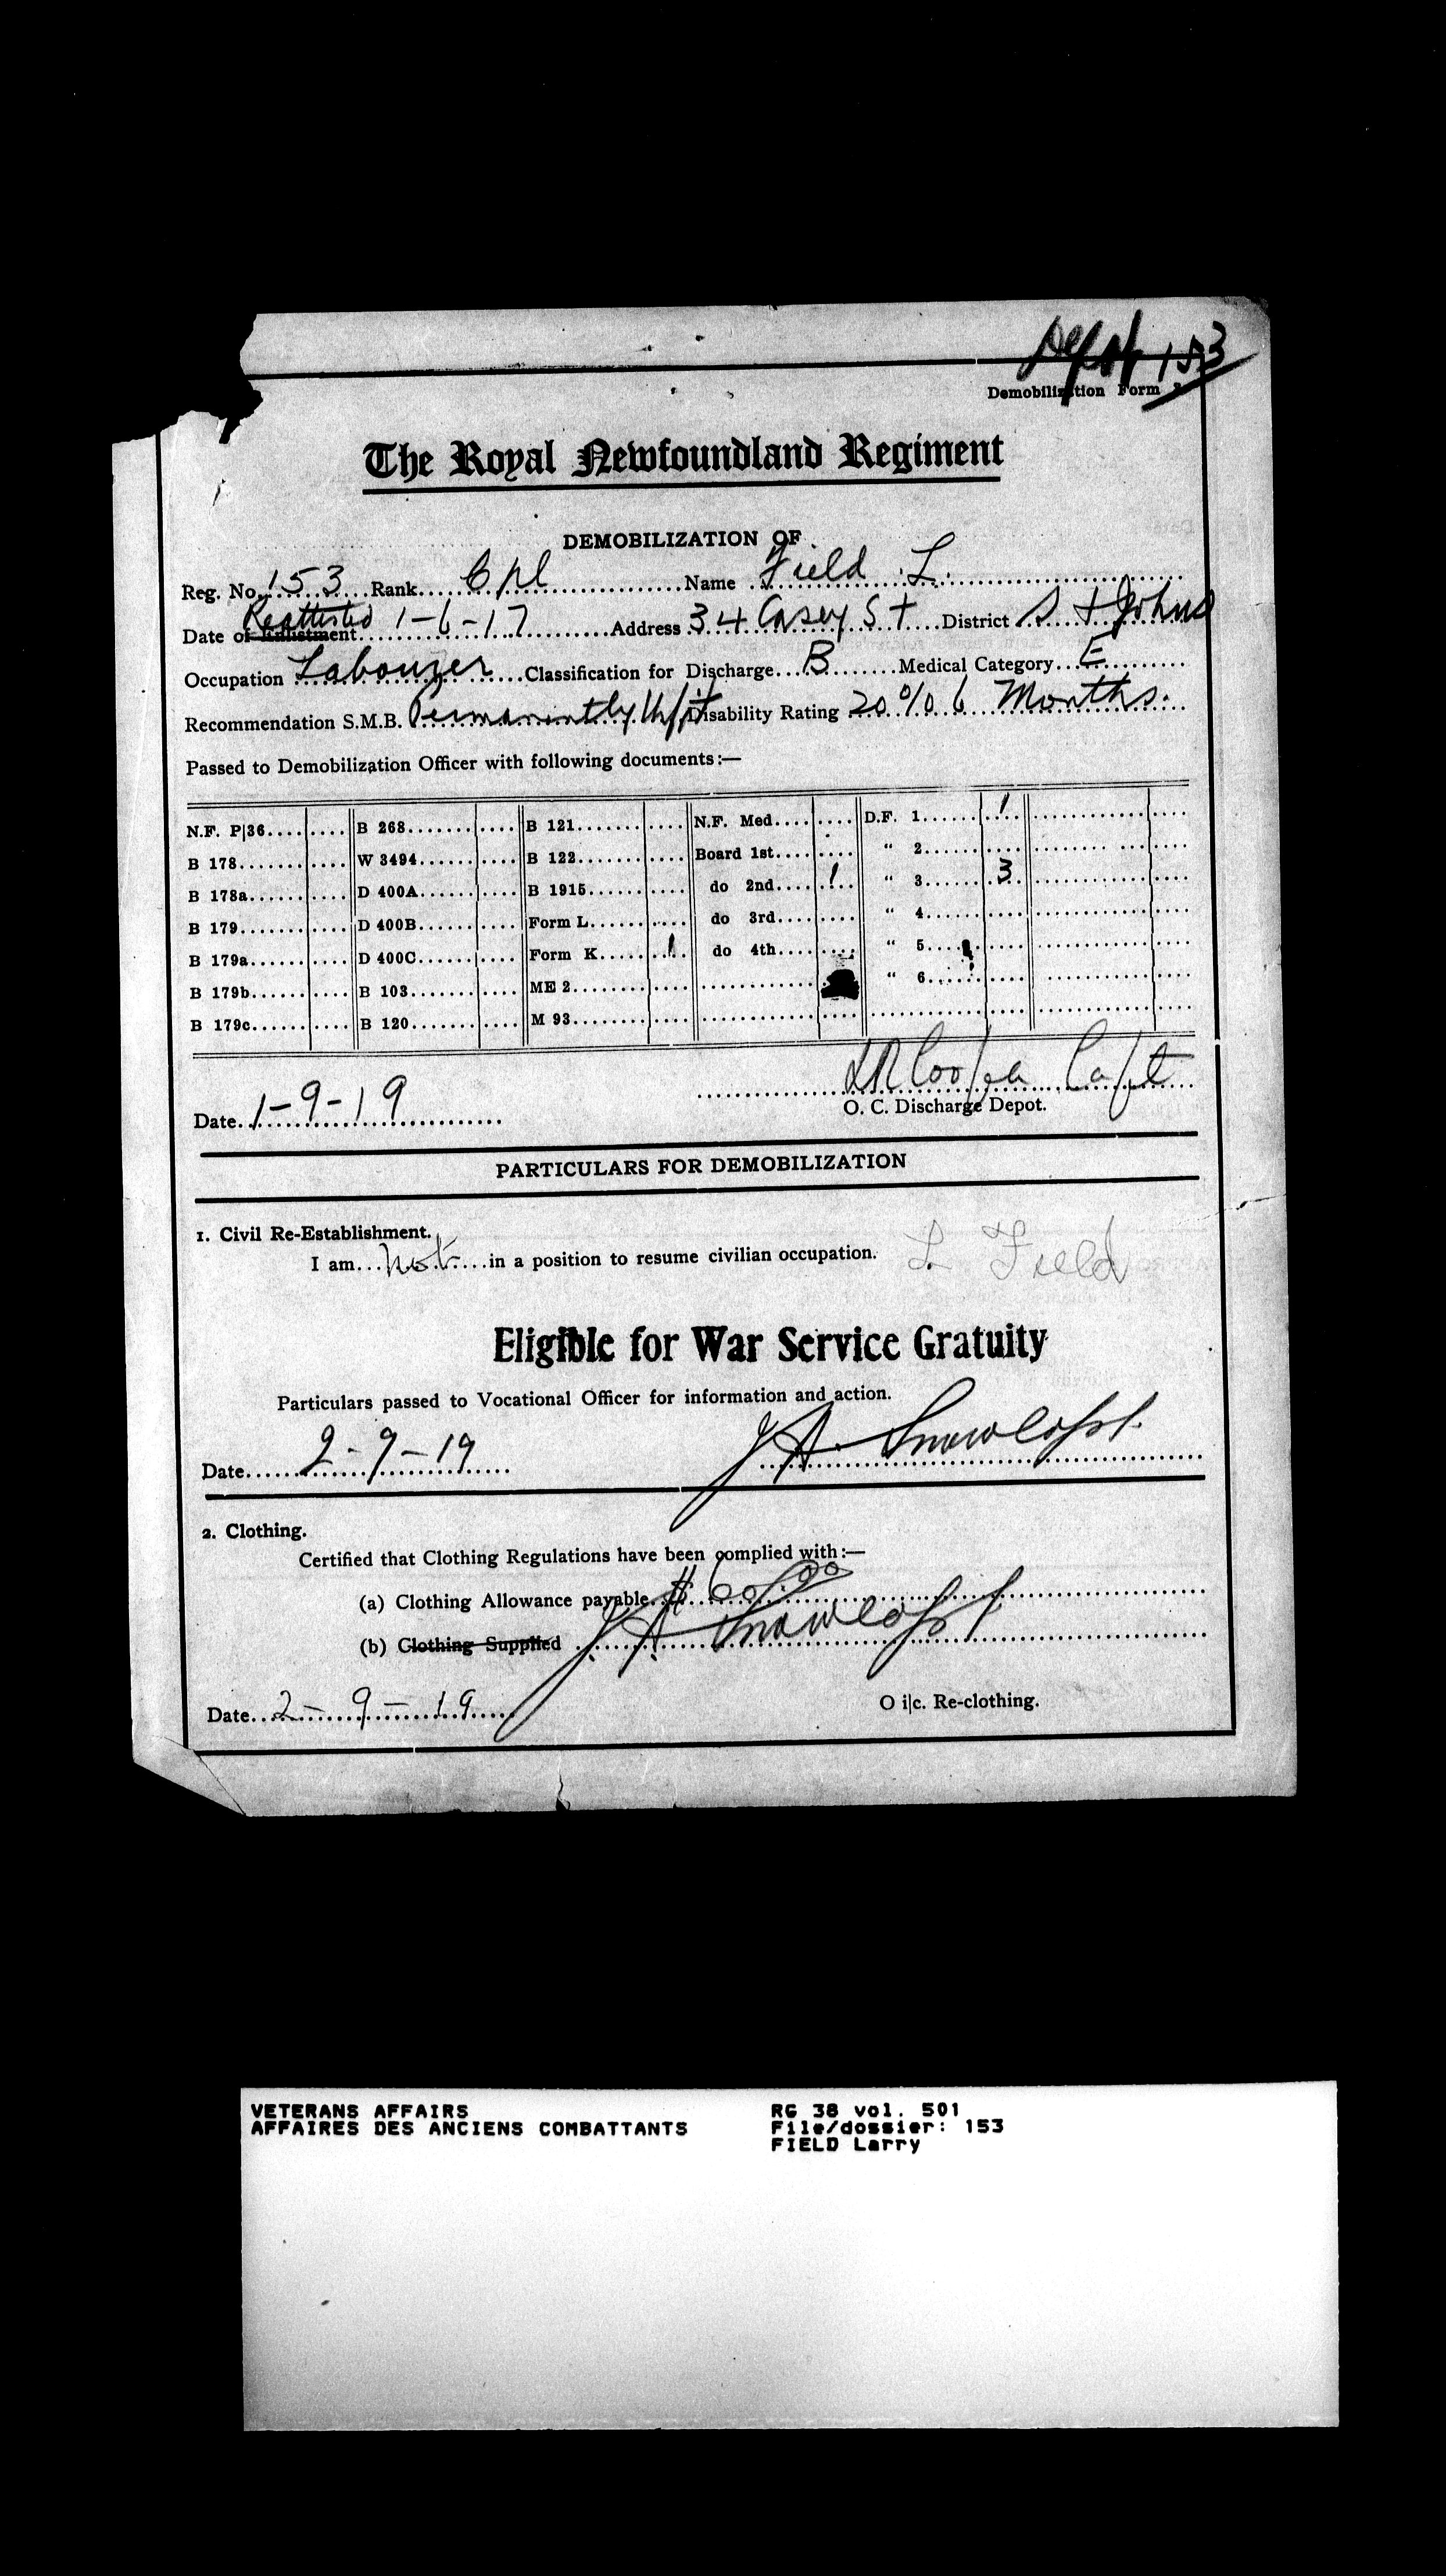 Dept 153
Demobilization Form
The Royal Newfoundland Regiment
DEMOBILIZATION OF
Reg. No. 153 Rank Cpl Name Field L.
Reattested
Date of Enlistment 1-6-17 Address 34 Casey St District St Johns
Occupation Labourer Classification for Discharge B Medical Category E
Recommendation S.M.B. Permanently Unfit Disability Rating 20% 6 Months.
Passed to Demobilization Officer with following documents:—
N.F. P|36 B 268 B 121 N.F. Med D.F. 1 1
B 178 W 3494 B 122 Board 1st " 2
B 178a D 400A B 1915 do 2nd 1 " 3 3
B 179 D 400B Form L do 3rd " 4
B 179a D 400C Form K 1 do 4th " 5
B 179b B 103 ME 2 " 6
B 179c B 120 M 93
Date 1-9-19 Capt
O. C. Discharge Depot.
PARTICULARS FOR DEMOBILIZATION
1. Civil Re-Establishment.
I am not in a position to resume civilian occupation. L Field
Eligible for War Service Gratuity
Particulars passed to Vocational Officer for information and action.
Date 2-9-19 J A Snow Capt.
2. Clothing.
Certified that Clothing Regulations have been complied with:—
(a) Clothing Allowance payable $60.00
(b) Clothing Supplied J A Snow Capt
Date 2-9-19 O i|c. Re-clothing.
VETERANS AFFAIRS RG 38 vol. 501
AFFAIRES DES ANCIENS COMBATTANTS File/dossier: 153
FIELD Larry